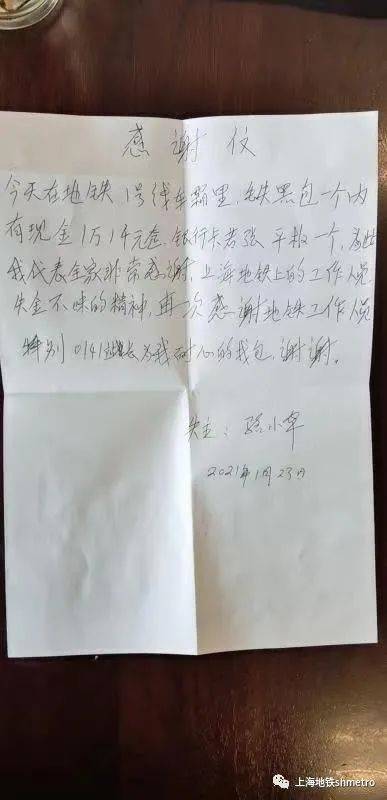 感谢仪
今天在地铁1号线车厢里,铁黑包一个内
有现金1万1仟元卷,银行卡若张 平板一个,为此
我代表全家非常感谢,上海地铁上的工作人员,
失金不昧的精神,再次感谢地铁工作人员
特别0141站长为我耐心的找包,谢谢。
失主:小军
2021年1月23日
上海地铁shmetro